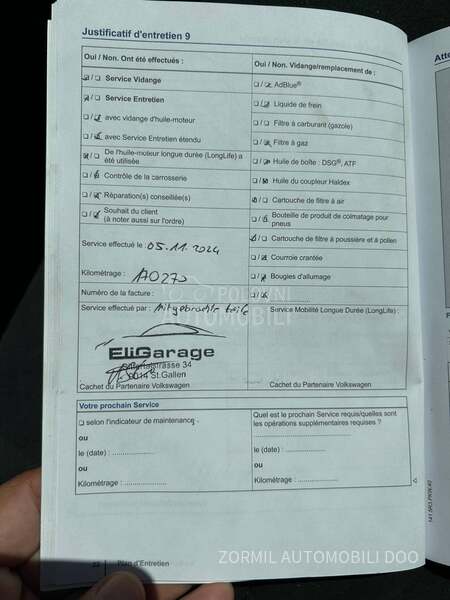 Justificatif d'entretien 9
Oui / Non. Ont été effectués :
Oui / Non. Vidange/remplacement de :
Service Vidange
AdBlue®
Service Entretien
Liquide de frein
avec vidange d'huile-moteur
Filtre à carburant (gazole)
avec Service Entretien étendu
Filtre à gaz
De l'huile-moteur longue durée (LongLife) a
été utilisée
Huile de boîte : DSG®, ATF
Contrôle de la carrosserie
Huile du coupleur Haldex
Réparation(s) conseillée(s)
Cartouche de filtre à air
Souhait du client
(à noter aussi sur l'ordre)
Bouteille de produit de colmatage pour
pneus
Service effectué le : 05.11.2024
Cartouche de filtre à poussière et à pollen
Courroie crantée
Kilométrage : 170270
Bougies d'allumage
Numéro de la facture :
POLOVNI
AUTOMOBILI
Service effectué par : Mitgebrachte Teile
Service Mobilité Longue Durée (LongLife) :
EliGarage
strasse 34
9014 St.Gallen
Cachet du Partenaire Volkswagen
Cachet du Partenaire Volkswagen
Votre prochain Service
selon l'indicateur de maintenance -
Quel est le prochain Service requis/quelles sont
les opérations supplémentaires requises ?
ou
le (date) :
le (date) :
ou
ou
Kilométrage :
Kilométrage :
52 Plan d'Entretien
141.5R3.PKW.40
Atte
ZORMIL AUTOMOBILI DOO